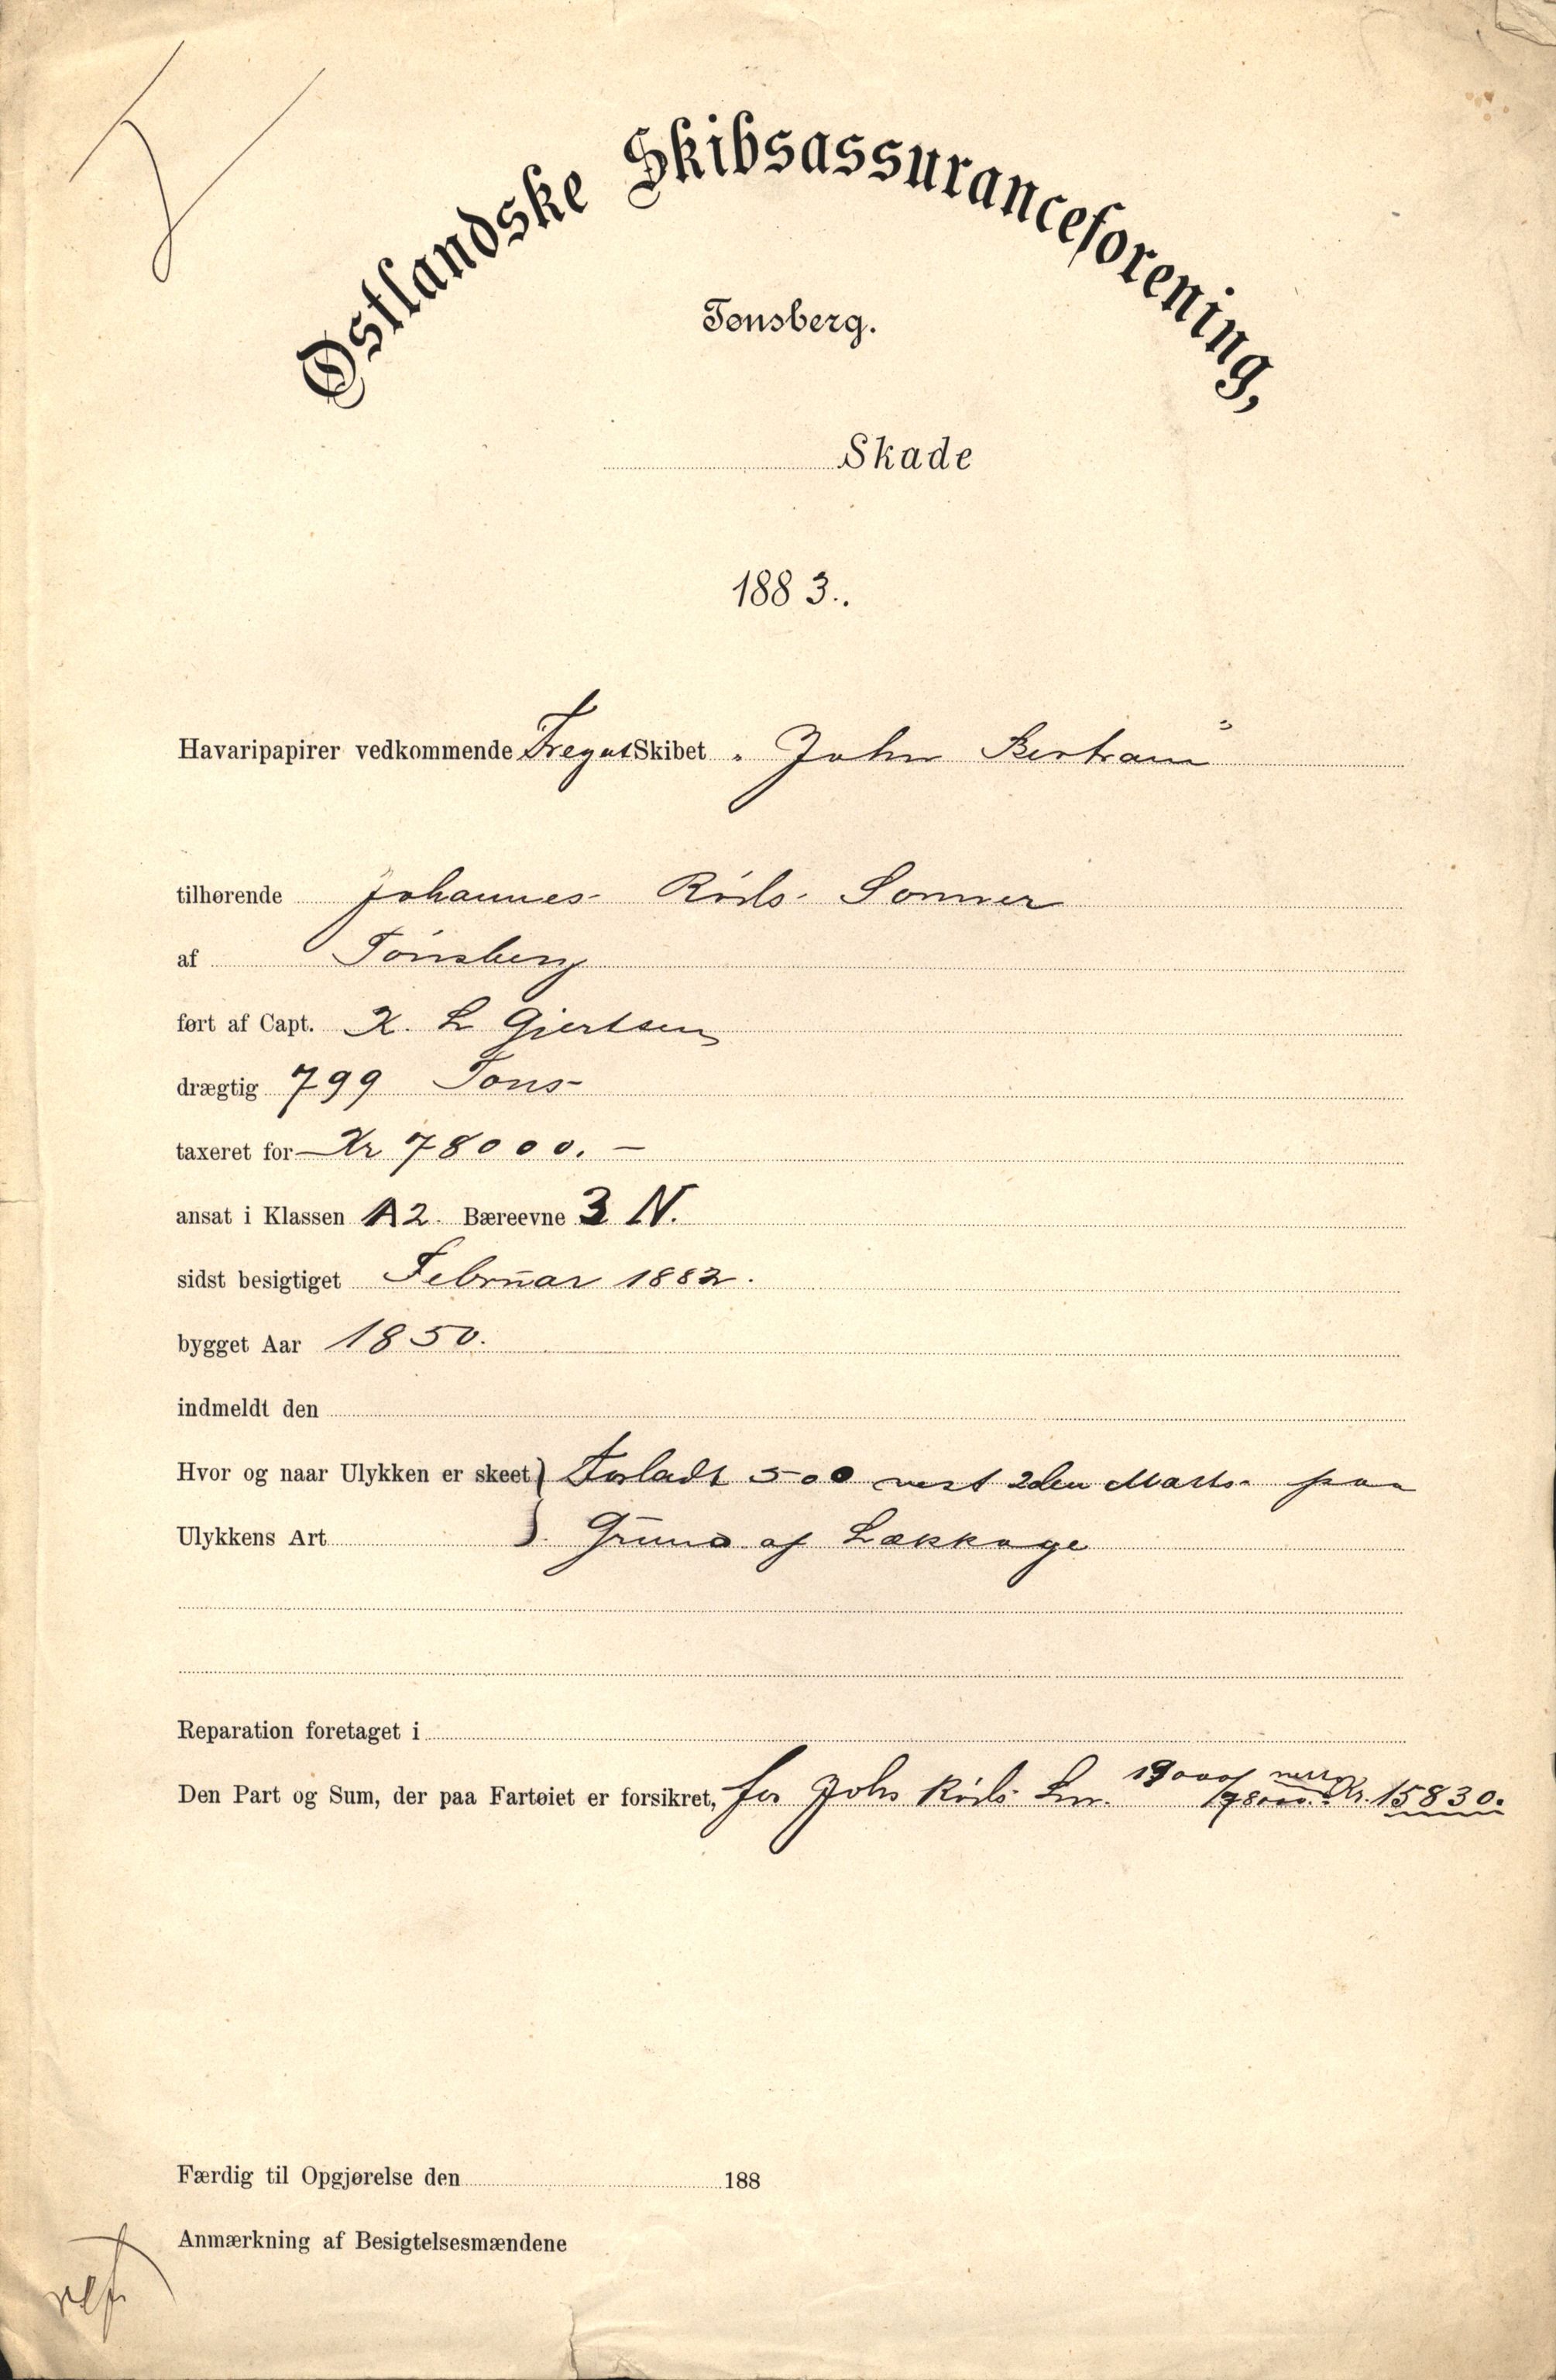 Østlandske Skibsassuranceforening,
Tønsberg.
Skade
1883.
Havaripapirer vedkommende Fregat Skibet „John Bertram"
tilhørende Johannes Røds Sønner
af Tönsberg
ført af Capt. K. L Gjertsen
drægtig 799 Tons
taxeret for Kr 78000. —
ansat i Klassen A2. Bæreevne 3 N.
sidst besigtiget Februar 1882.
bygget Aar 1850.
indmeldt den
Hvor og naar Ulykken er skeet Forladt 500 vest 2den Marts paa
Ulykkens Art Grund af Lækkage
Reparation foretaget i
Den Part og Sum, der paa Fartøiet er forsikret, for Johs Röds Kr. 15830.
Færdig til Opgjørelse den 188
Anmærkning af Besigtelsesmændene